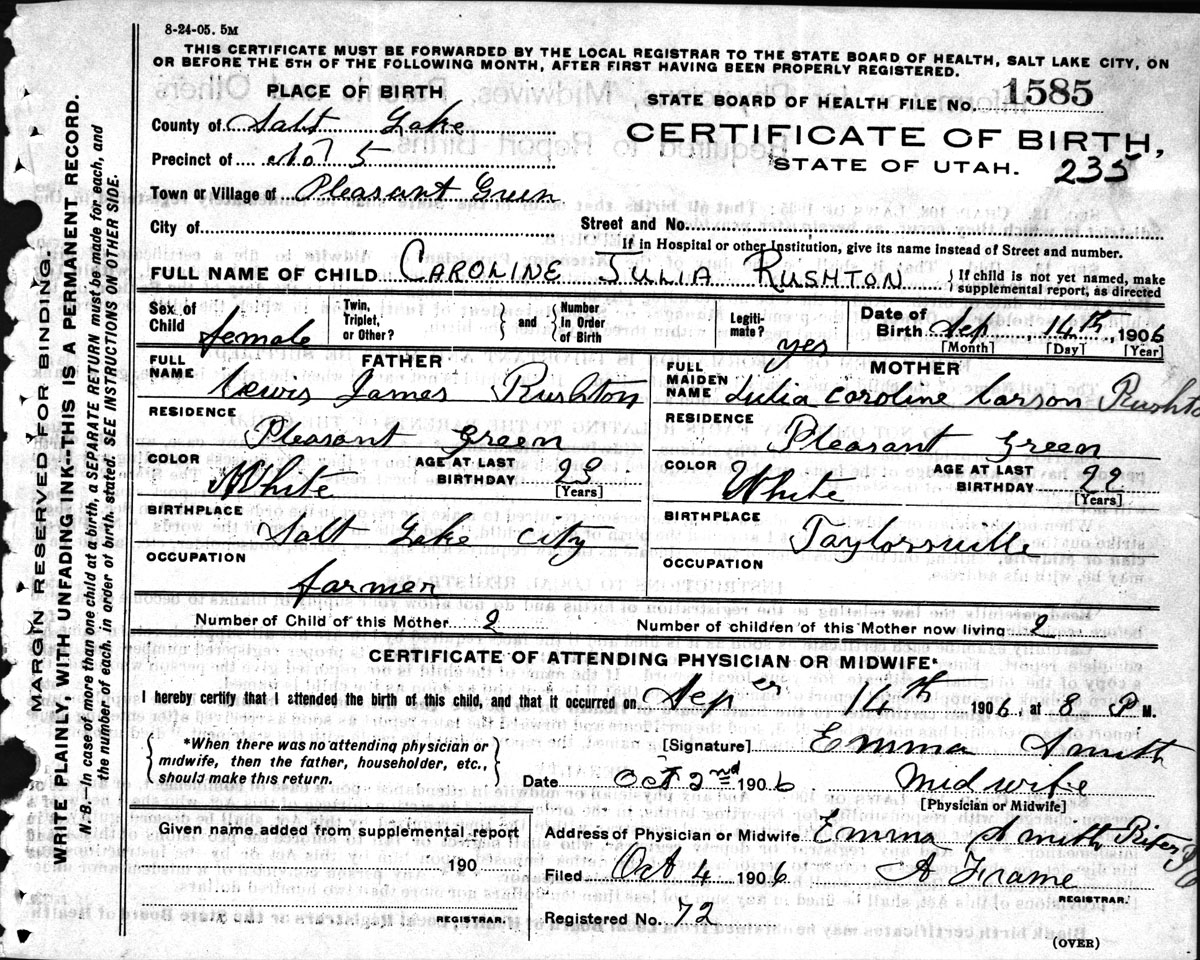 8-24-05. 5M
THIS CERTIFICATE MUST BE FORWARDED BY THE LOCAL REGISTRAR TO THE STATE BOARD OF HEALTH, SALT LAKE CITY, ON
OR BEFORE THE 5TH OF THE FOLLOWING MONTH, AFTER FIRST HAVING BEEN PROPERLY REGISTERED.
PLACE OF BIRTH
STATE BOARD OF HEALTH FILE No. 1585
County of Salt Lake
CERTIFICATE OF BIRTH,
Precinct of No. 5
STATE OF UTAH. 235
Town or Village of Pleasant Green
City of
Street and No.
If in Hospital or other Institution, give its name instead of Street and number.
FULL NAME OF CHILD CAROLINE JULIA RUSHTON } If child is not yet named, make supplemental report, as directed
Sex of Child female Twin, Triplet, or Other? } and { Number In Order of Birth Legiti-mate? yes Date of Birth Sep. 14th, 1906
[Month] [Day] [Year]
FATHER
MOTHER
FULL NAME Lewis James Rushton
FULL MAIDEN NAME Julia Caroline Larson Rusht
RESIDENCE Pleasant Green
RESIDENCE Pleasant Green
COLOR White AGE AT LAST BIRTHDAY 23 [Years]
COLOR White AGE AT LAST BIRTHDAY 22 [Years]
BIRTHPLACE Salt Lake City
BIRTHPLACE Taylorsville
OCCUPATION farmer
OCCUPATION
Number of Child of this Mother 2 Number of children of this Mother now living 2
CERTIFICATE OF ATTENDING PHYSICIAN OR MIDWIFE*
I hereby certify that I attended the birth of this child, and that it occurred on Sep 14th 1906, at 8 P M.
*When there was no attending physician or
midwife, then the father, householder, etc.,
should make this return.
[Signature] Emma Smith
Date Oct 2nd 1906 Midwife
[Physician or Midwife]
Given name added from supplemental report
190
REGISTRAR.
Address of Physician or Midwife Emma Smith Riter
Filed Oct 4 1906 A Frame
REGISTRAR.
Registered No. 72
(OVER)
MARGIN RESERVED FOR BINDING.
WRITE PLAINLY, WITH UNFADING INK--THIS IS A PERMANENT RECORD.
N.B.--In case of more than one child at a birth, a SEPARATE RETURN must be made for each, and
the number of each, in order of birth, stated. SEE INSTRUCTIONS ON OTHER SIDE.